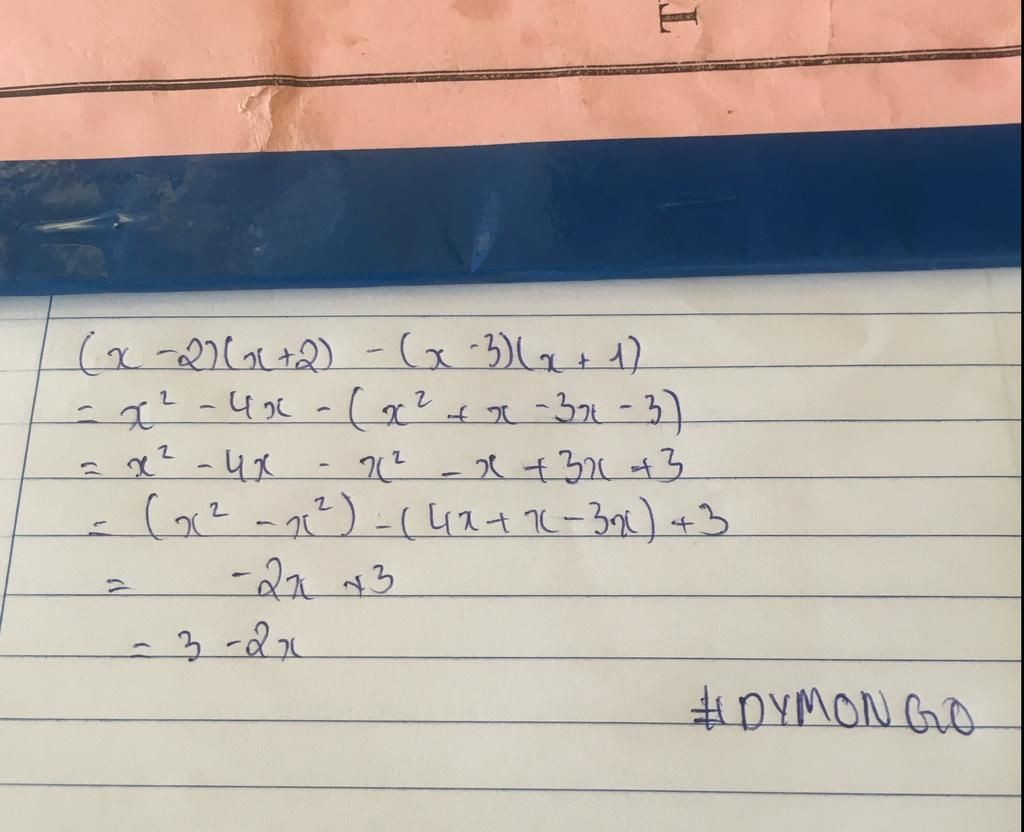 T
(x - 2)(x + 2) - (x - 3)(x + 1)
= x² - 4x - (x² + x - 3x - 3)
= x² - 4x - x² - x + 3x + 3
= (x² - x²) - (4x + x - 3x) + 3
= -2x + 3
= 3 - 2x
#DYMONGO